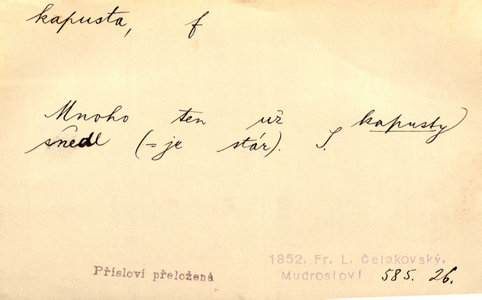 kapusta, f
Mnoho ten už kapusty
snědl (= je stár). S.
Přísloví přeložená
1852. Fr. L. Čelakovský,
Mudrosloví 585. 26.